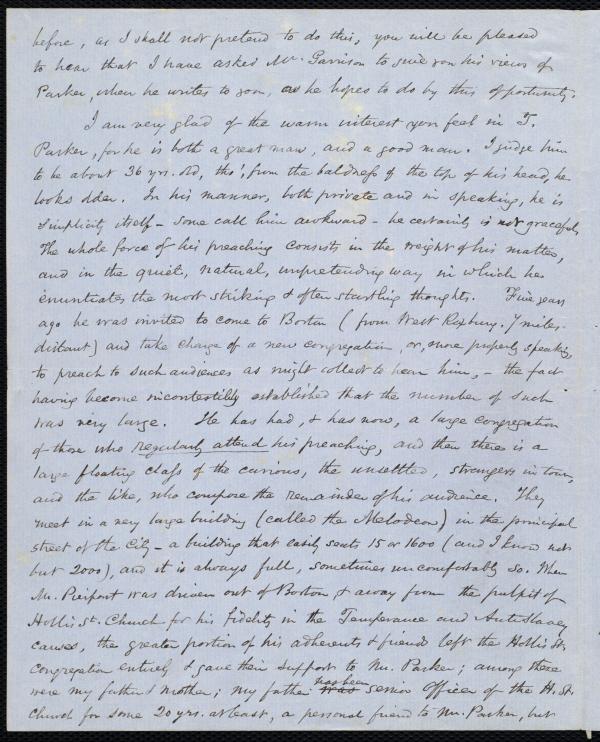 before, as I shall not pretend to do this, you will be pleased
to hear that I have asked Mr. Garrison to give you his views of
Parker, when he writes to you, as he hopes to do by this opportunity.
I am very glad of the warm interest you feel in T.
Parker, for he is both a great man, and a good man. I judge him
to be about 36 yrs. old, tho', from the baldness of the top of his head, he
looks older. In his manner, both private and in speaking, he is
simplicity itself - some call him awkward - he certainly is not graceful.
The whole force of his preaching consists in the weight of his matter,
and in the quiet, natural, unpretending way in which he
enunciates the most striking & often startling thoughts. Five years
ago he was invited to come to Boston (from West Roxbury. 7 miles
distant) and take charge of a new congregation, or, more properly speaking,
to preach to such audiences as might collect to hear him, - the fact
having become incontestibly established that the number of such
was very large. He has had, & has now, a large congregation
of those who regularly attend his preaching, and then there is a
large floating class of the curious, the unsettled, strangers in town,
and the like, who compose the remainder of his audience. They
meet in a very large building (called the Melodeon) in the principal
street of the City - a building that easily seats 15 or 1600 (and I know not
but 2000), and it is always full, sometimes uncomfortably so. When
Mr. Pierpont was driven out of Boston & away from the pulpit of
Hollis St. Church for his fidelity in the Temperance and AntiSlavery
causes, the greater portion of his adherents & friends left the Hollis St.
Congregation entirely & gave their support to Mr. Parker; among these
were my father & mother; my father has been senior Officer of the H. St.
Church for some 20 yrs. at least, a personal friend to Mr. Parker, but